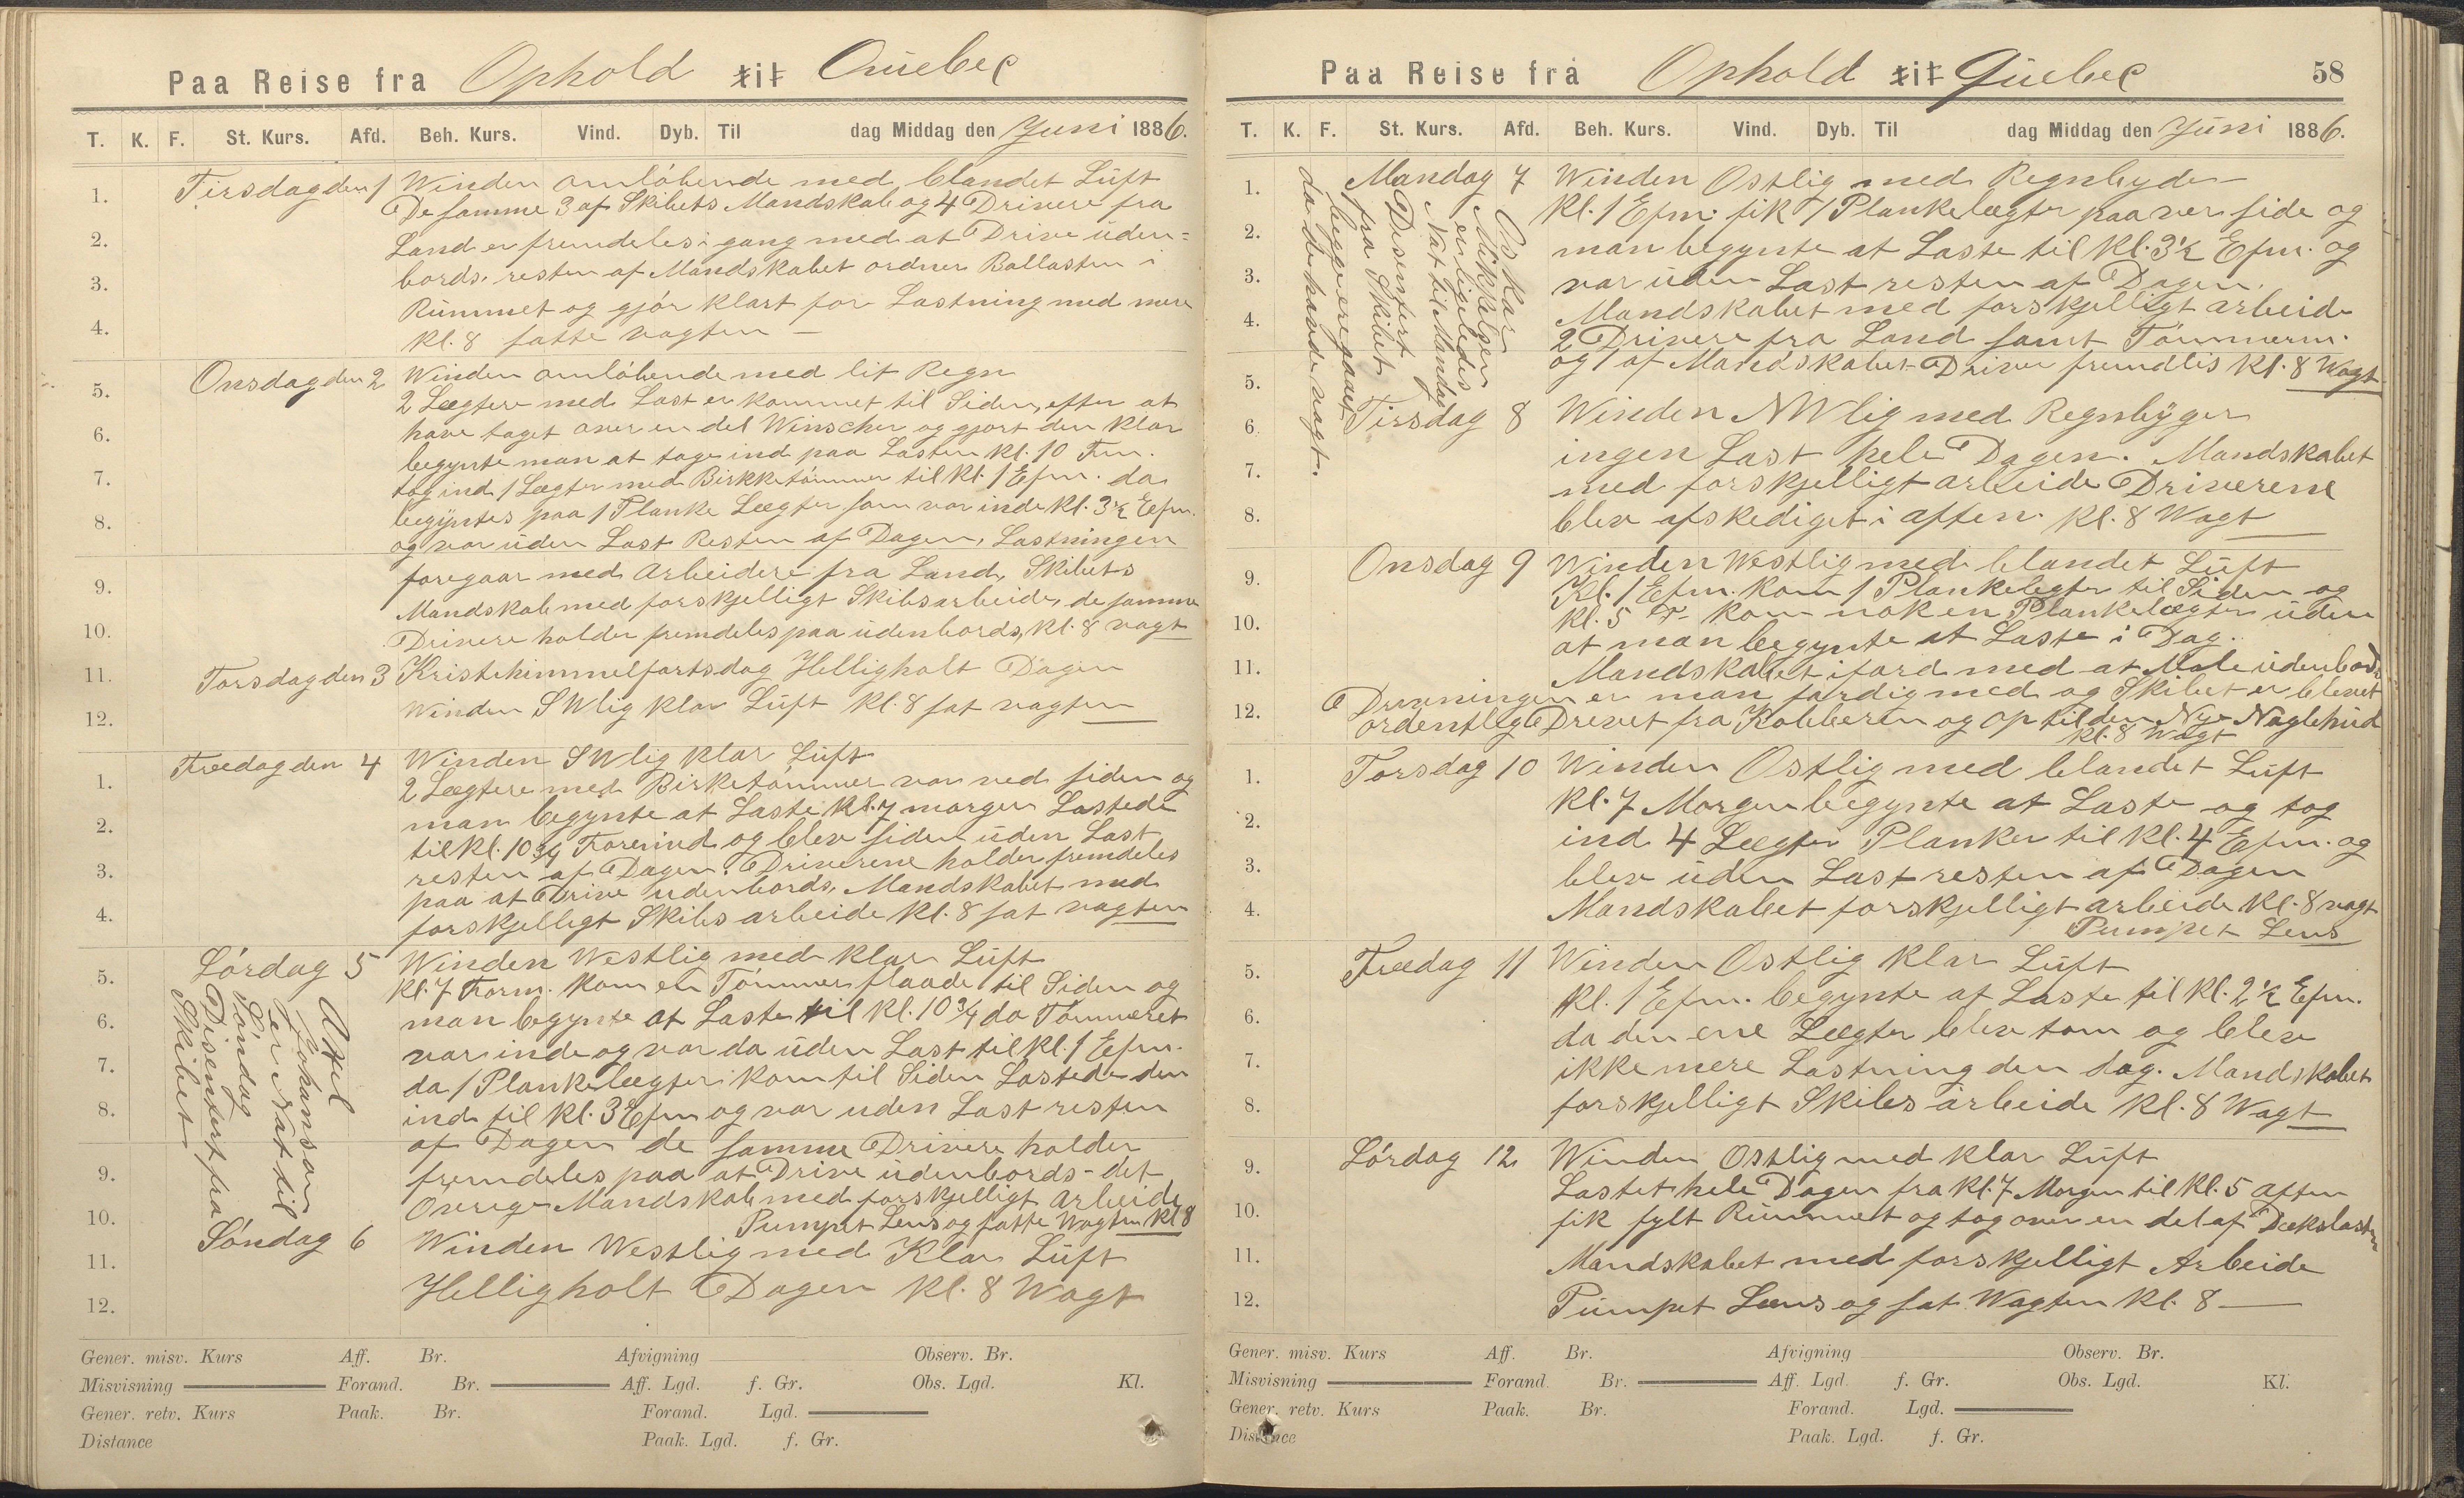 Paa Reise fra Ophold til Quebec
T. K. F. St. Kurs. Afd. Beh. Kurs. Vind. Dyb. Til dag Middag den Juni 1886.
Tirsdag den 1 Winden omløbende med blandet Luft
De samme 3 af Skibets Mandskab og 4 Drivere fra
Land er fremdeles i gang med at Drive uden=
bords. resten af Mandskabet ordner Ballasten i
Rummet og gjør klart for Lastning med mere
kl. 8 satte vagten —
Onsdag den 2 Winden omløbende med lit Regn
2 Lægtere med Last er kommet til Siden, efter at
have taget over en del Winscher og gjort den klar
begynte man at tage ind paa Lasten kl. 10 Fm.
tog ind 1 Lægter med Birkketømmer til kl. 1 Efm. da
begyntes paa 1 Planke Lægter som var inde kl. 3½ Efm.
og var uden Last Resten af Dagen, Lastningen
foregaar med Arbeidere fra Land, Skibets
Mandskab med forskjelligt Skibsarbeide, de samme
Drivere holder fremdeles paa udenbords, kl. 8 vagt
Torsdag den 3 Kristehimmelfartsdag Helligholt Dagen
Winden SWlig klar Luft kl. 8 sat vagten
Freedag den 4 Winden SWlig klar Luft
2 Lægtere med Birketømmer var ved siden og
man begynte at Laste kl. 7 morgen Lastede
til kl. 10¾ Forerind og blev siden uden Last
resten af Dagen. Driverene holder fremdeles
paa at Drive udenbords, Mandskabet med
forskjelligt Skibs arbeide kl. 8 sat vagten
Lørdag 5 Winden Westlig med klar Luft
kl. 7 Form. kom en Tømmerflaade til Siden og
man begynte at Laste til kl. 10¾ da Tømmeret
var inde og var da uden Last til kl. 1 Efm.
da 1 Plankelægter kom til Siden Lastede den
ind til kl. 3 Efm og var uden Last resten
af Dagen de samme Drivere holder
fremdeles paa at Drive udenbords - det
Øverige Mandskab med forskjelligt Arbeide
Pumpet Lens og satte Wagten kl 8
Axel
Johanson
er Nat til
Søndag
Disentert fra
Skibet
Søndag 6 Winden Westlig med Klar Luft
Helligholt Dagen kl. 8 Wagt
1.
2.
3.
4.
5.
6.
7.
8.
9.
10.
11.
12.
1.
2.
3.
4.
5.
6.
7.
8.
9.
10.
11.
12.
Gener. misv. Kurs Aff. Br. Afvigning Observ. Br.
Misvisning Forand. Br. Aff. Lgd. f. Gr. Obs. Lgd. Kl.
Gener. retv. Kurs Paak. Br. Forand. Lgd.
Distance Paak. Lgd. f. Gr.
Paa Reise fra Ophold til Quebec 58
T. K. F. St. Kurs. Afd. Beh. Kurs. Vind. Dyb. Til dag Middag den Juni 1886.
Mandag 7 Winden Østlig med Regnbyder
kl. 1 Efm. fik 1 Plankelægter paa ver side og
man begynte at Laste til kl. 3½ Efm. og
var uden Last resten af Dagen.
Mandskabet med forskjelligt arbeide
2 Drivere fra Land samt Tømmerm.
og 1 af Mandskabet Driver fremdlis kl. 8 Wagt
Oskar
Mikkelsen
er ligeledis
Nat til Mandag
Disentert
fra Skibet
begge ere gaaet
da de havde vagt.
Tirsdag 8 Winden NWlig med Regnbyger
ingen Last hele Dagen. Mandskabet
med forskjelligt arbeide Driverene
blev afskediget i aften. kl. 8 Wagt
Onsdag 9 Winden Westlig med blandet Luft
Kl. 1 Efm. kom 1 Plankelegter til Siden og
kl. 5 kom nok en Plankelægter uden
at man begynte at Laste i Dag.
Mandskabet i fard med at Male udenbords
Drevningen er man færdig med og Skibet er blevet
ordentlig Drevet fra Kobberen og op til den Nye Naglehud
kl. 8 Wagt
Torsdag 10 Winden Østlig med blandet Luft
kl. 7 Morgen begynte at Laste og tog
ind 4 Lægter Planker til kl. 4 Efm. og
blev uden Last resten af Dagen
Mandskabet forskjelligt arbeide kl. 8 vagt
Pumpet Lens
Freedag 11 Winden Østlig klar Luft
kl. 1 Efm. begynte at Laste til kl. 2½ Efm.
da den ene Lægter blev tom og blev
ikke mere Lastning den dag. Mandskabet
forskjelligt Skibs arbeide kl. 8 Wagt
Lørdag 12 Winden Østlig med klar Luft
Lastet hele Dagen fra kl. 7 Morgen til kl. 5 aften
fik fylt Rummet og tog over en del af Dækslasten
Mandskabet med forskjelligt Arbeide
Pumpet Læns og sat Wagten kl. 8 —
1.
2.
3.
4.
5.
6.
7.
8.
9.
10.
11.
12.
1.
2.
3.
4.
5.
6.
7.
8.
9.
10.
11.
12.
Gener. misv. Kurs Aff. Br. Afvigning Observ. Br.
Misvisning Forand. Br. Aff. Lgd. f. Gr. Obs. Lgd. Kl.
Gener. retv. Kurs Paak. Br. Forand. Lgd.
Distance Paak. Lgd. f. Gr.